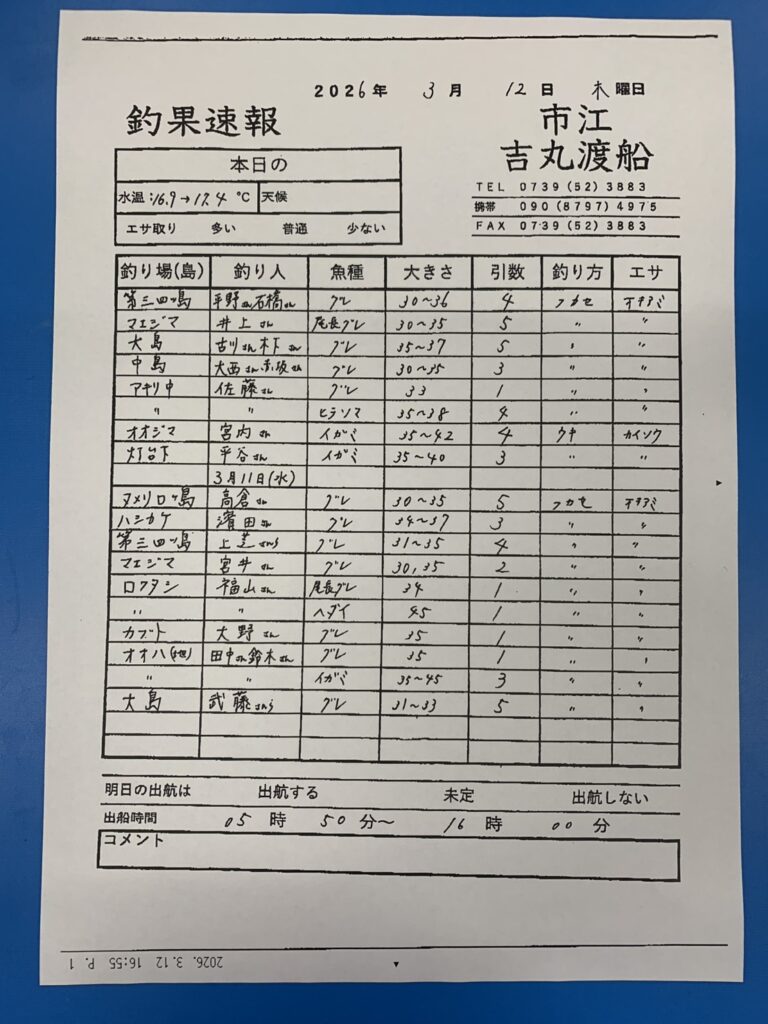 2026年 3月 12日 木曜日
釣果速報
市江
吉丸渡船
本日の
水温:16.9→17.4 ℃ 天候
エサ取り 多い 普通 少ない
TEL 0739(52)3883
携帯 090(8797)4975
FAX 0739(52)3883
釣り場(島) 釣り人 魚種 大きさ 引数 釣り方 エサ
第三四ツ島 平野さん石橋さん グレ 30~36 4 フカセ オキアミ
マエジマ 井上さん 尾長グレ 30~35 5 〃 〃
大島 古川さん木下さん グレ 35~37 5 〃 〃
中島 大西さん赤坂さん グレ 30~35 3 〃 〃
アキリ中 佐藤さん グレ 33 1 〃 〃
〃 〃 ヒラソマ 35~38 4 〃 〃
オオジマ 宮内さん イガミ 35~42 4 ウキ カイソウ
灯台下 平谷さん イガミ 35~40 3 〃 〃
3月11日(水)
ヌメリロツ島 高倉さん グレ 30~35 5 フカセ オキアミ
ハシカケ 濱田さん グレ 34~37 3 〃 〃
第三四ツ島 上芝さんら グレ 31~35 4 〃 〃
マエジマ 宮井さん グレ 30,35 2 〃 〃
ロクタン 福山さん 尾長グレ 34 1 〃 〃
〃 〃 ヘダイ 45 1 〃 〃
カブト 大野さん グレ 35 1 〃 〃
オオハ(地) 田中さん鈴木さん グレ 35 1 〃 〃
〃 〃 イガミ 35~45 3 〃 〃
大島 武藤さんら グレ 31~33 5 〃 〃
明日の出航は 出航する 未定 出航しない
出船時間 05時 50分~ 16時 00分
コメント
2026. 3.12 16:55 P. 1